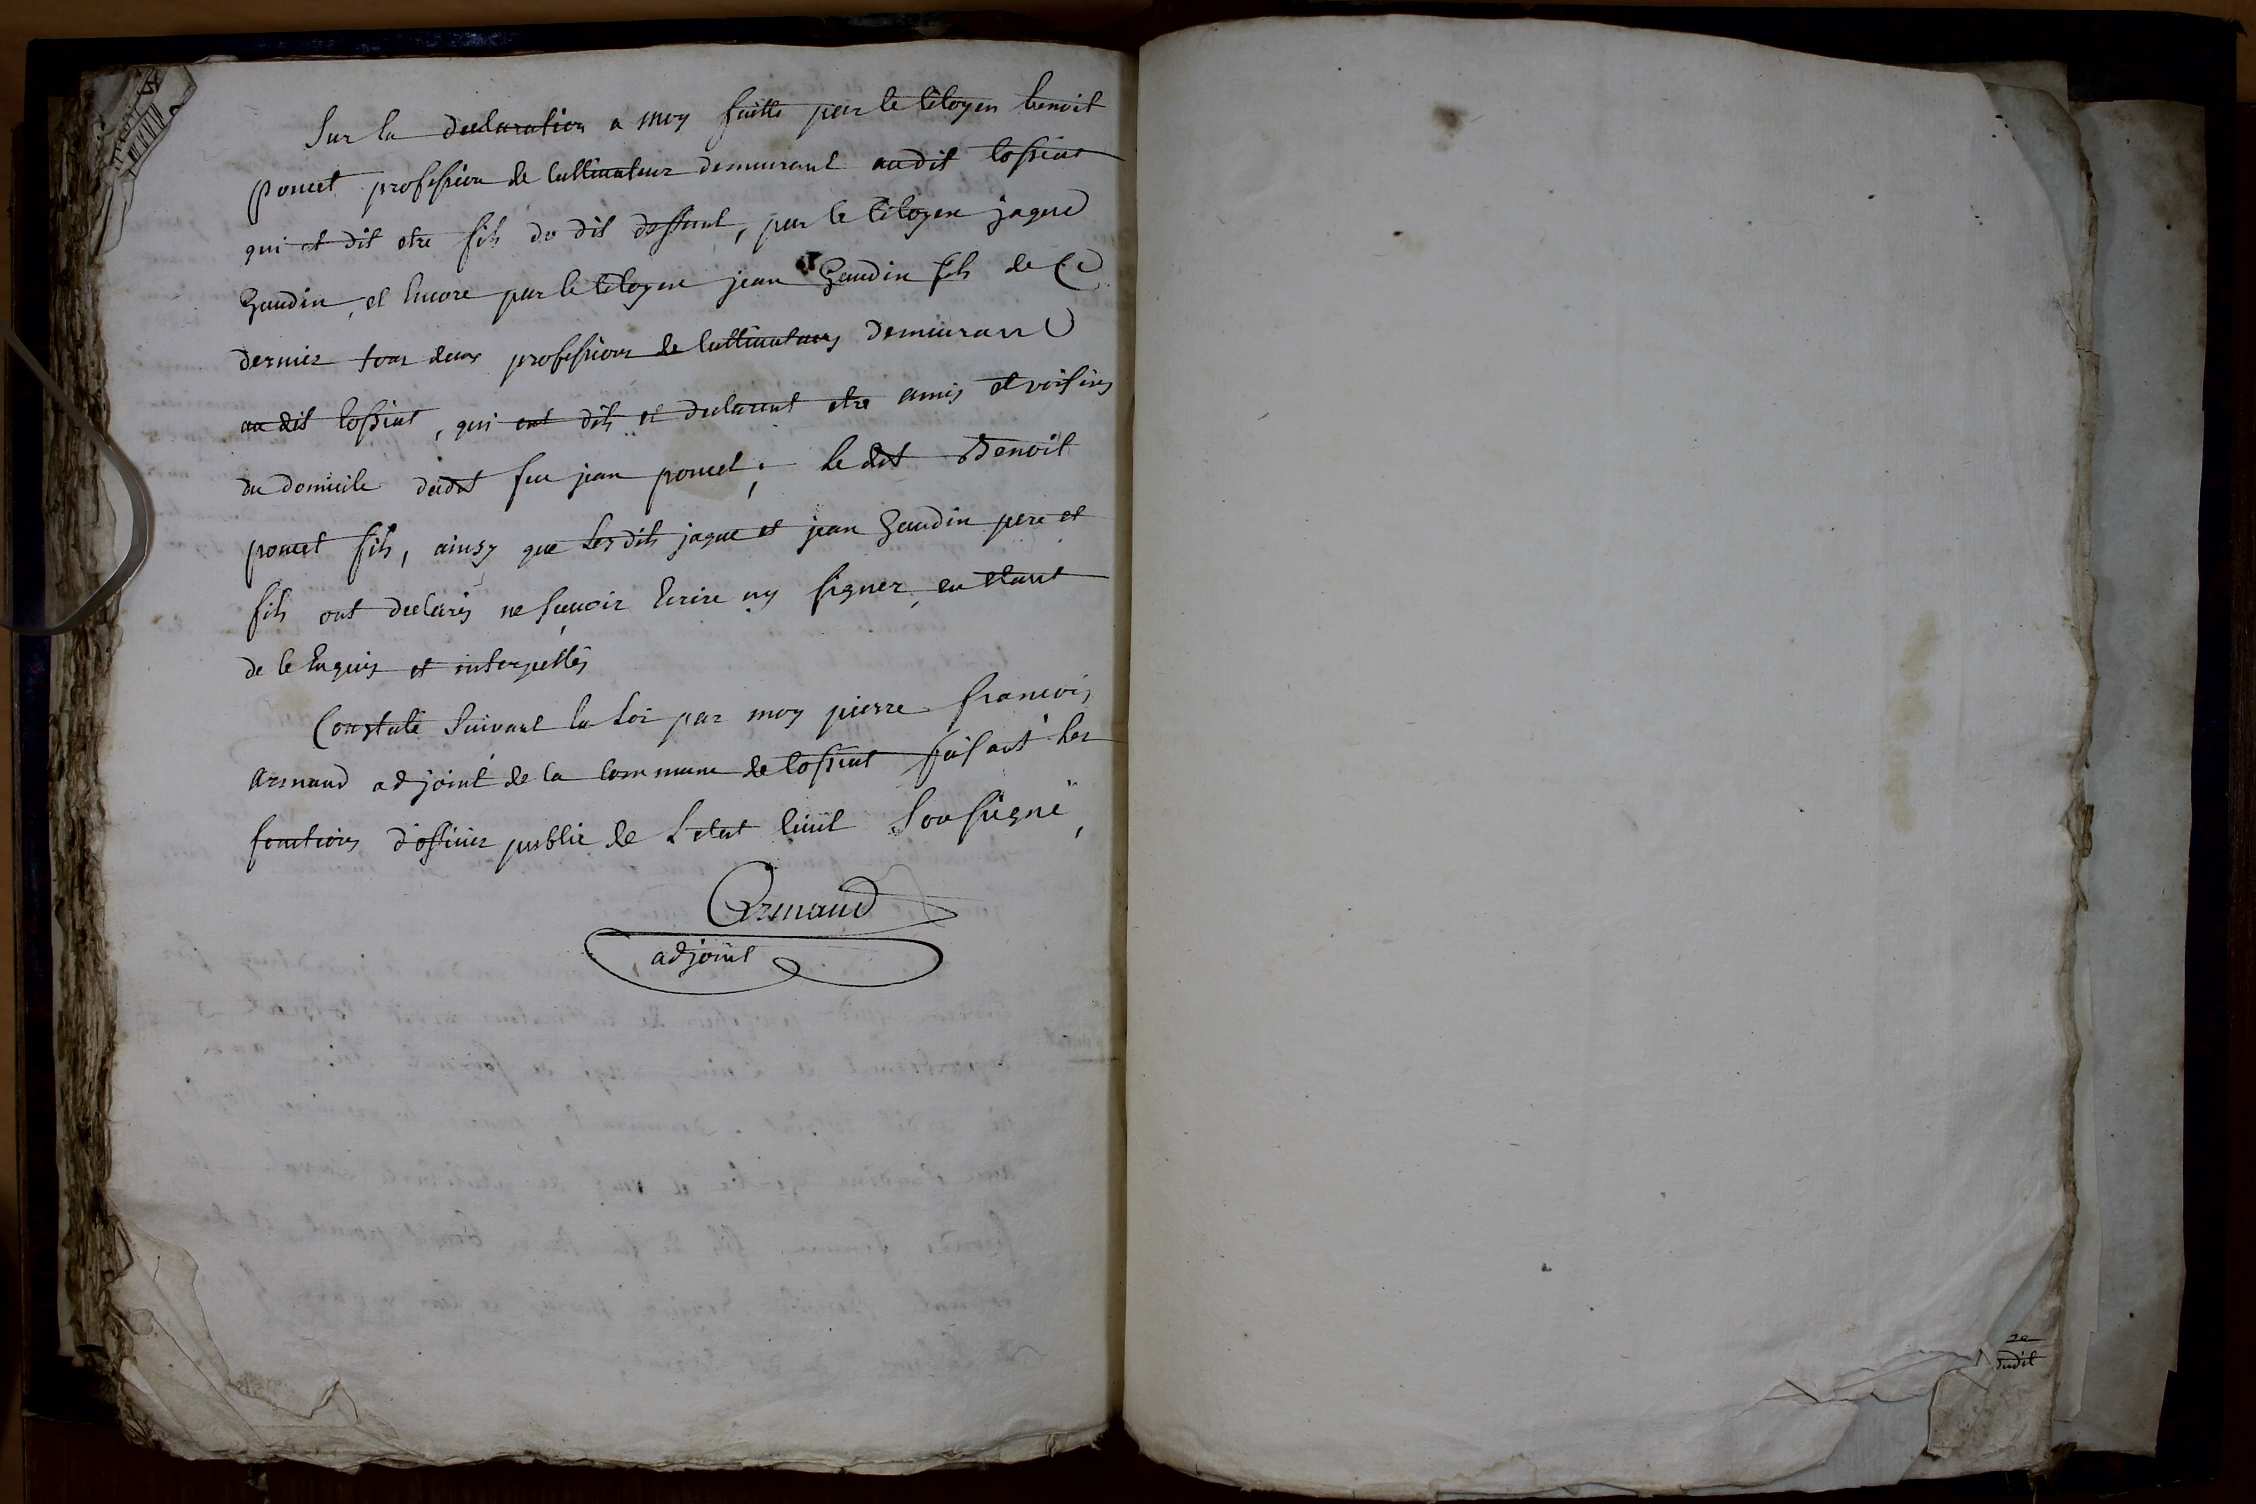 Sur la declaration a moy faitte par le Citoyen benoit
poncet profession de Cultivateur demeurant audit Cossiat
qui et dit etre fils du dit deffunt, par le Citoyen jaque
Gaudin, et Encore par le Citoyen jean Gaudin fils de Ce
dernier tous deux profession de Cultivateurs demeurant
au dit Cossiat, qui ont dits et declarent etre amis et voisins
du domicile dudit feu jean poncet; le dit Benoit
poncet fils, ainsy que Lesdits jaque et jean Gaudin pere et
fils ont declarés ne sçavoir Ecrire ny signer, en etant
de le Enquis et interpellés
Constaté Suivant la Loi par moy pierre francois
armand adjoint de la Commune de Cossiat faisant les
fonctions d'officier public de L'etat Civil Sousigné,
Armand
adjoint
dudit